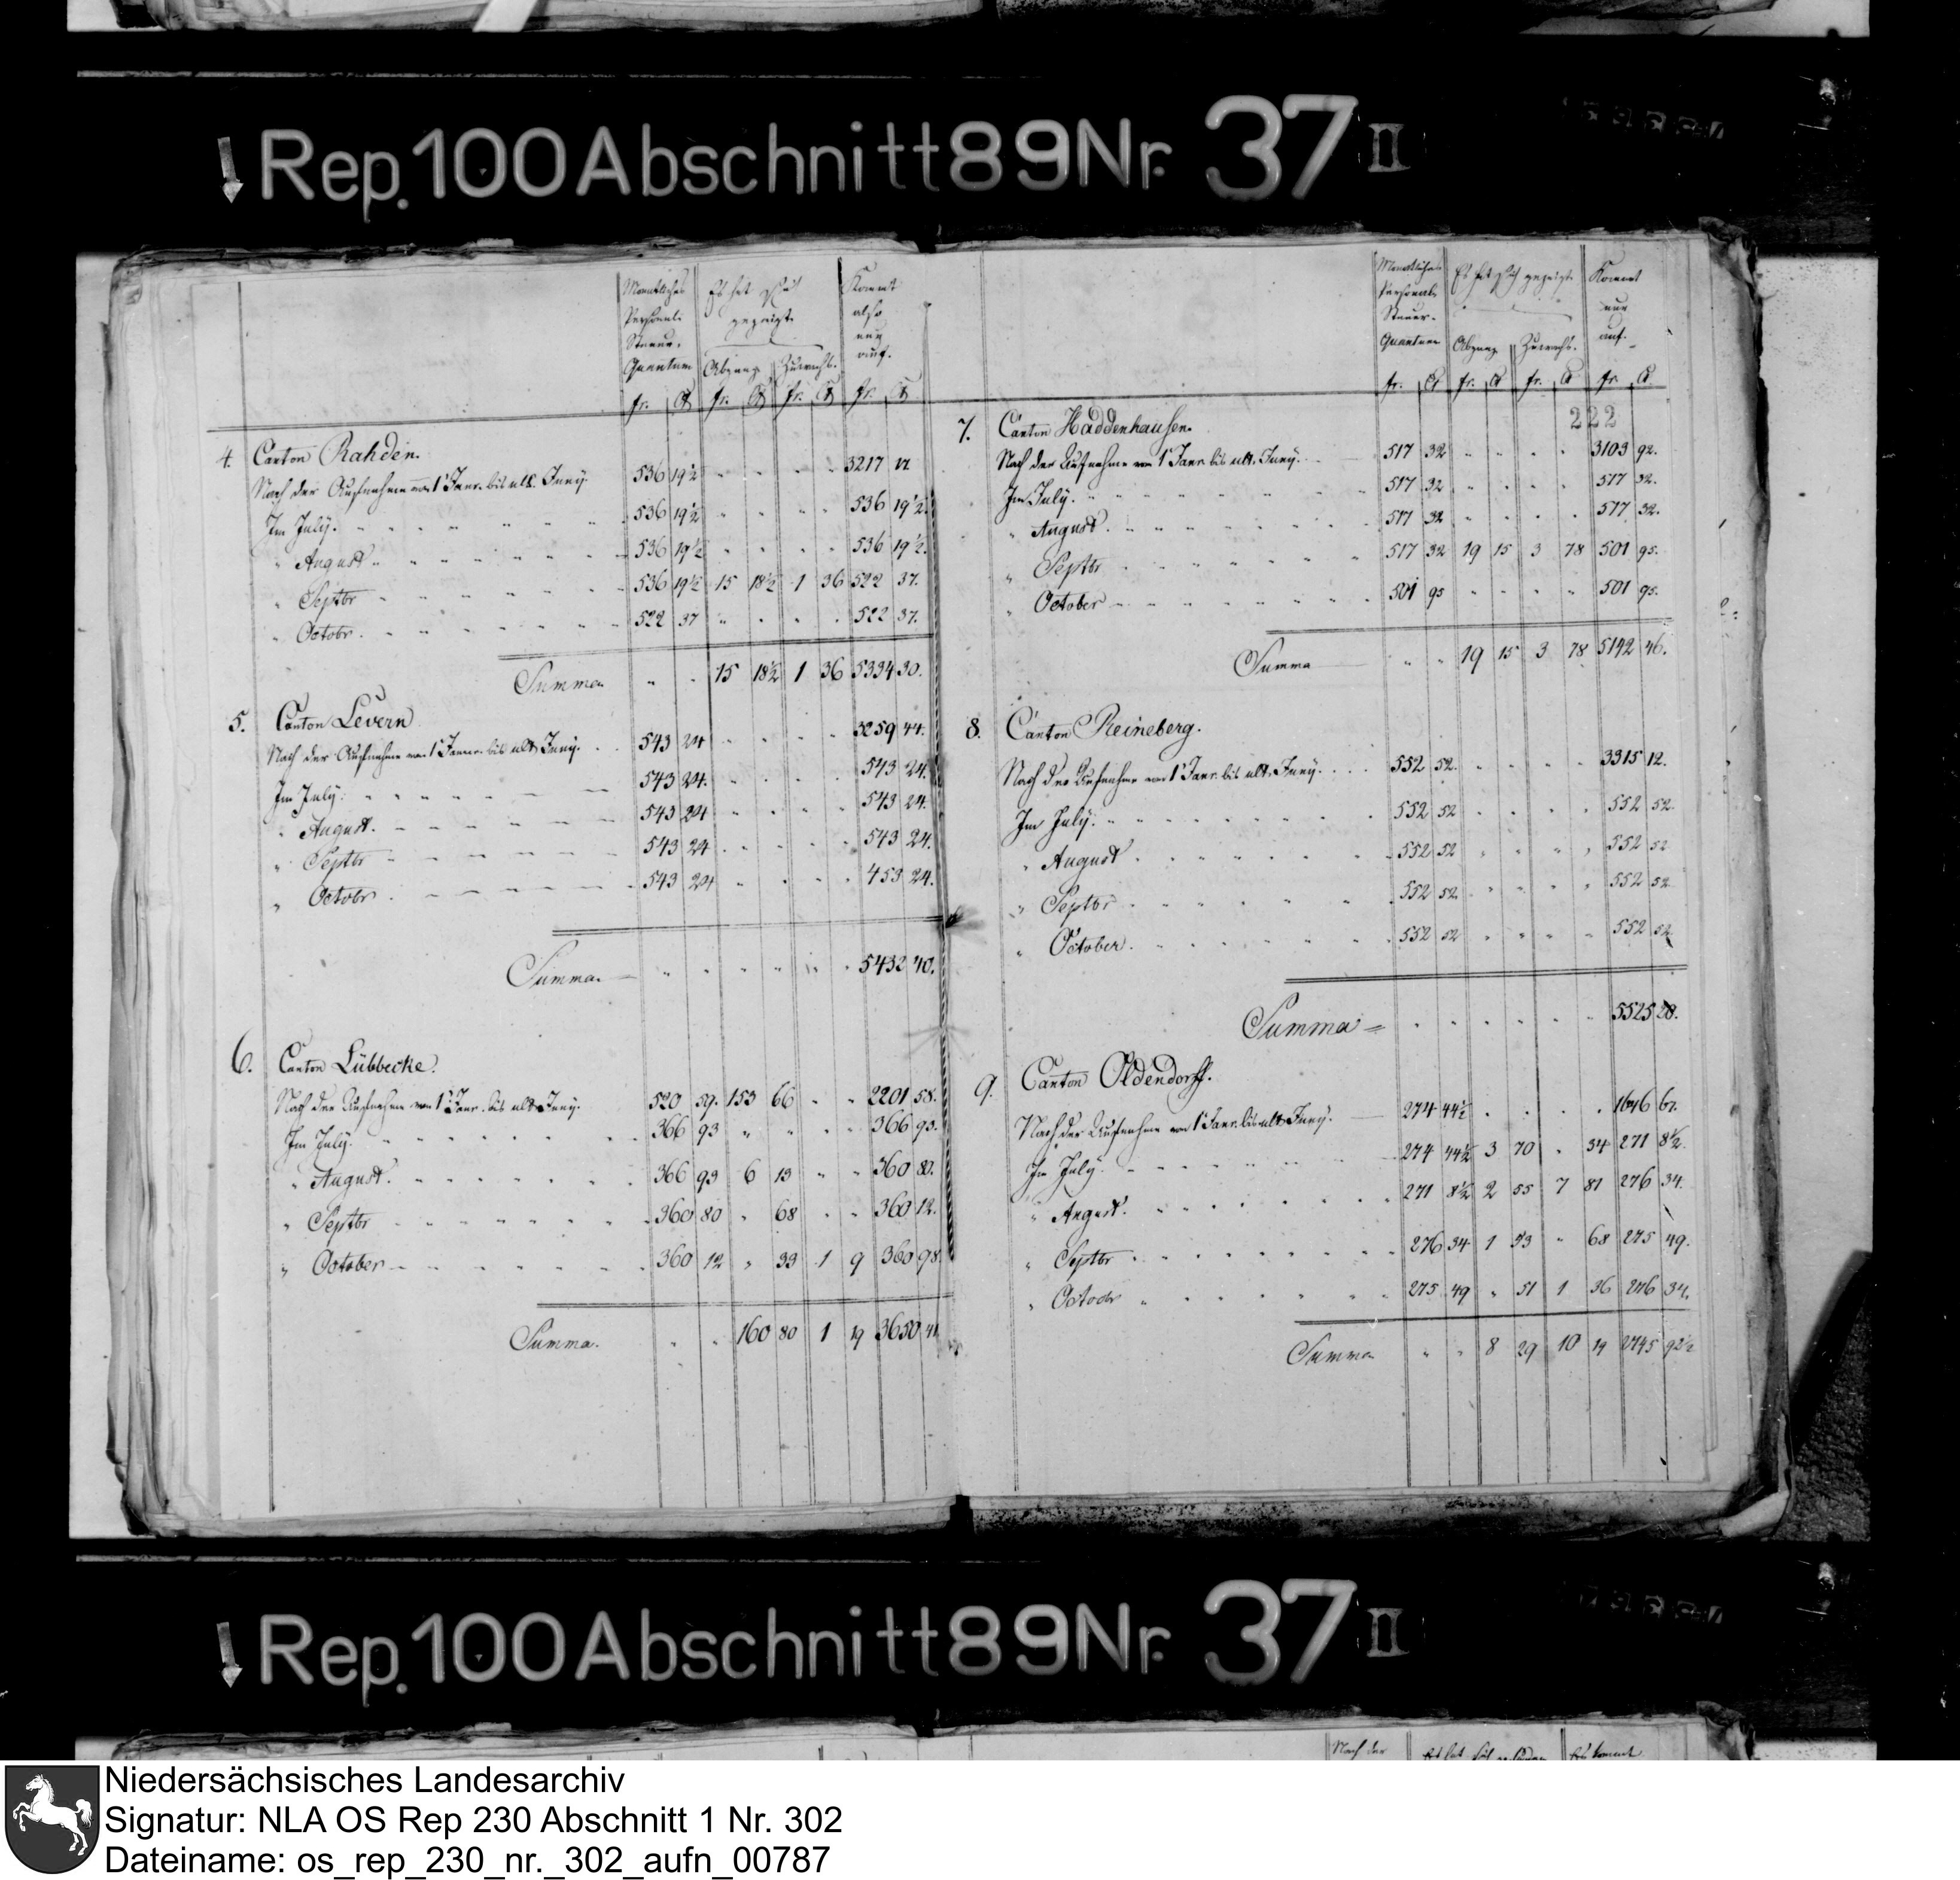 Rep. 100 Abschnitt 89 Nr. 37 II
Monatliches Personal-Steuer-Quantum | Es hat sich gezeigt | Kommt also nur auf.
Abgang | Zuwachs.
fr. | Ct | fr. | Ct | fr. | Ct | fr. | Ct
4. Canton Rahden.
Nach der Aufnahme vom 1t Janr. bis ult. Juny. 536 19½ 3217 17.
Im July. 536 19½ 536 19½.
" August 536 19½ 536 19½.
" Septbr 536 19½ 15 18½ 1 36 522 37.
" Octobr. 522 37 522 37.
Summa 15 18½ 1 36 5334 30.
5. Canton Levern
Nach der Aufnahme vom 1t Januar bis ult. Juny. 543 24 3259 44.
Im July. 543 24. 543 24.
" August. 543 24 543 24.
" Septbr 543 24 543 24.
" Octobr. 543 24 453 24.
Summa 5432 40.
6. Canton Lübbecke.
Nach der Aufnahme vom 1t Janr. bis ult. Juny. 520 59. 153 66 2201 58.
Im July. 366 93 366 93.
" August. 366 93 6 13 360 80.
" Septbr 360 80 " 68 360 12.
" October 360 12 " 33 1 9 360 98.
Summa. 160 80 1 19 3650 41
Monatliches Personal-Steuer-Quantum | Es hat sich gezeigt | Kommt nur auf.
Abgang | Zuwachs.
fr. | Ct | fr. | Ct | fr. | Ct | fr. | Ct
222
7. Canton Haddenhausen.
Nach der Aufnahme vom 1t Janr. bis ult. Juny. 517 32 3103 92.
Im July. 517 32 517 32.
" August. 517 32 517 32.
" Septbr 517 32 19 15 3 78 501 95.
" October 501 95 501 95.
Summa 19 15 3 78 5142 46.
8. Canton Reineberg.
Nach der Aufnahme vom 1t Janr. bis ult. Juny. 552 52. 3315 12.
Im July. 552 52 552 52.
" August 552 52 552 52
" Septbr 552 52. 552 52
" October. 552 52 552 52
Summa 5525 20.
9. Canton Oldendorff.
Nach der Aufnahme vom 1t Janr. bis ult. Juny. 274 44½ 1646 67.
Im July. 274 44½ 3 70 " 34 271 8½.
" August. 271 8½ 2 55 7 81 276 34.
" Septbr 276 34 1 53 " 68 275 49.
" Octobr 275 49 " 51 1 36 276 34.
Summa 8 29 10 19 2745 92½
Rep. 100 Abschnitt 89 Nr. 37 II
Nach der
Niedersächsisches Landesarchiv
Signatur: NLA OS Rep 230 Abschnitt 1 Nr. 302
Dateiname: os_rep_230_nr._302_aufn_00787